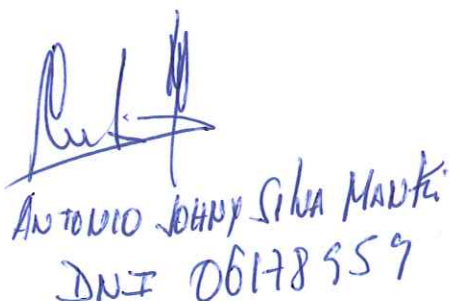 ANTONIO JOHNY SILVA MANTI
DNI 06178959